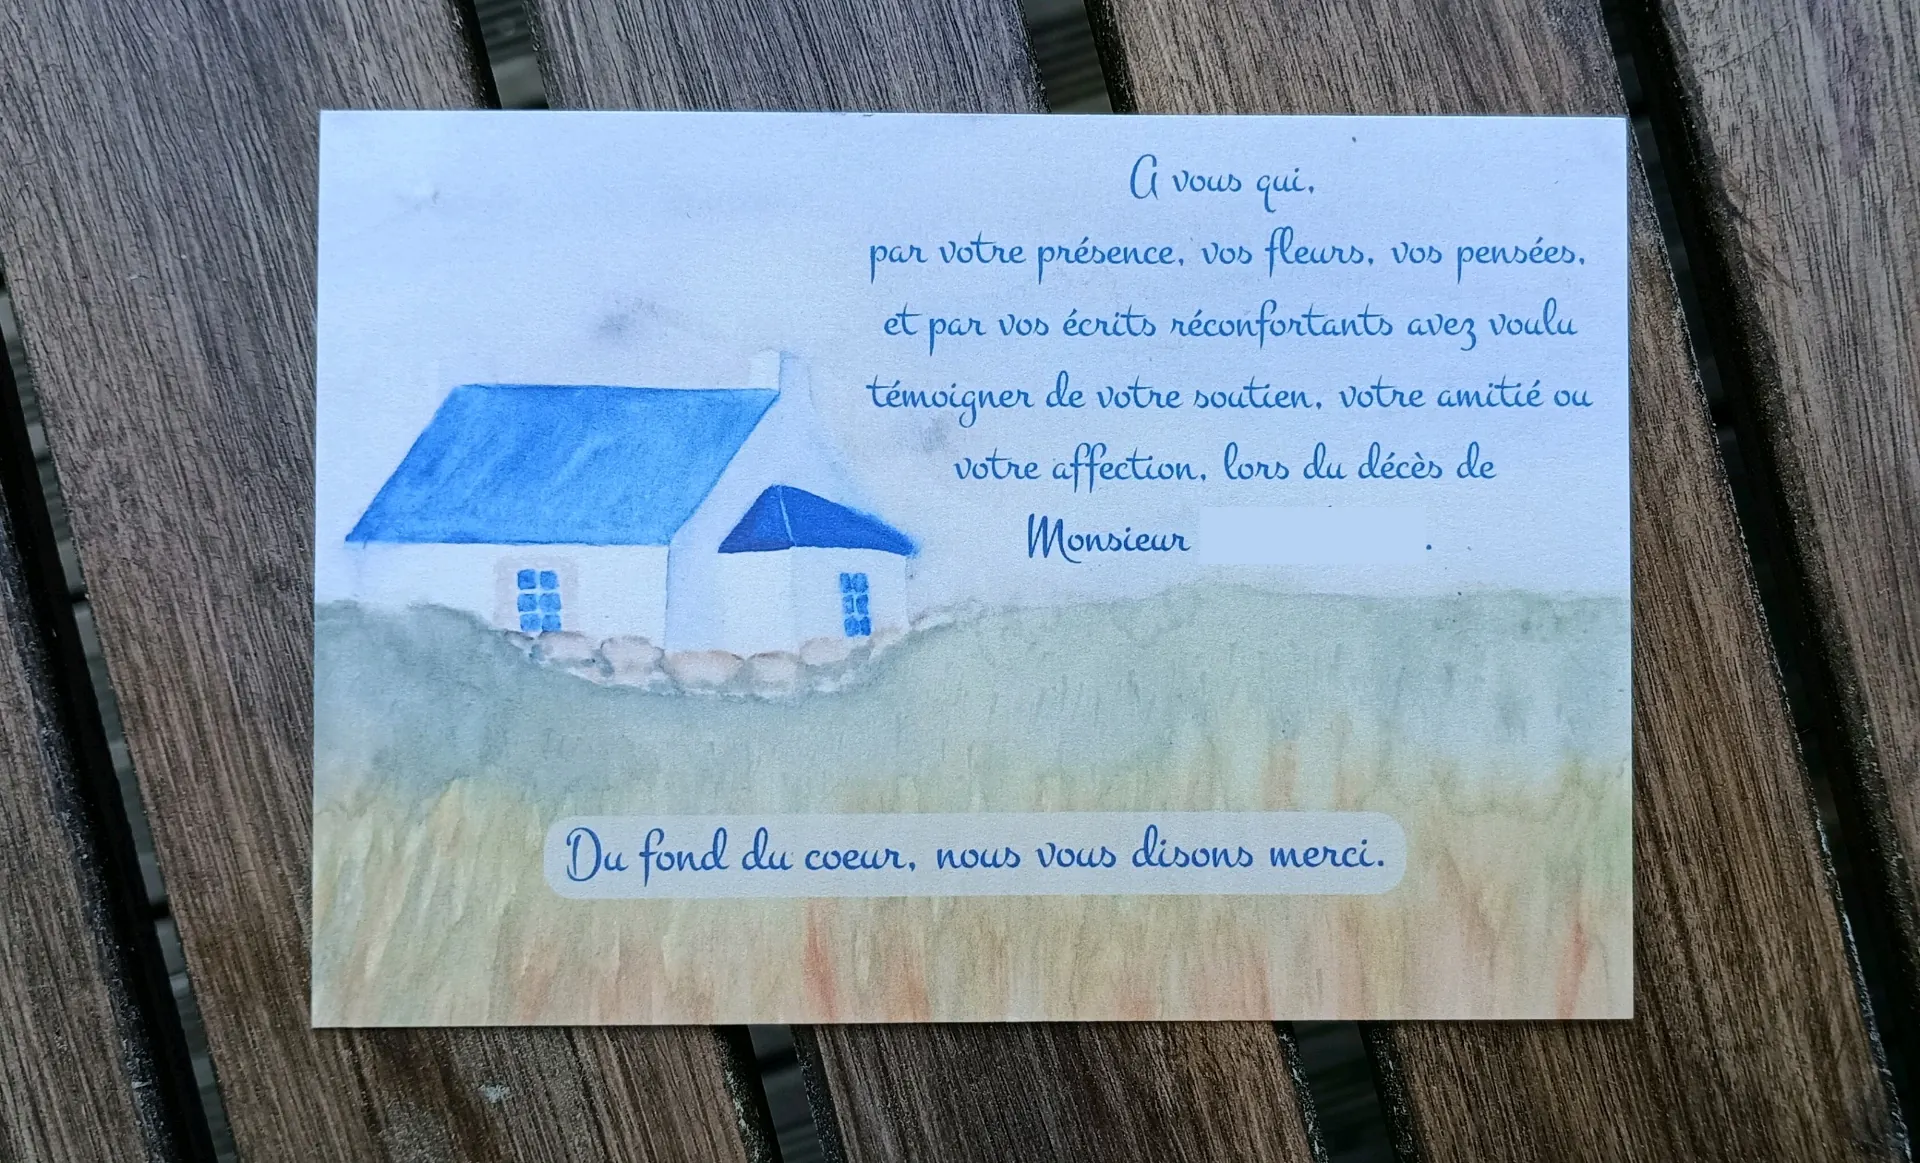 A vous qui,
par votre présence, vos fleurs, vos pensées,
et par vos écrits réconfortants avez voulu
témoigner de votre soutien, votre amitié ou
votre affection, lors du décès de
Monsieur .
Du fond du coeur, nous vous disons merci.